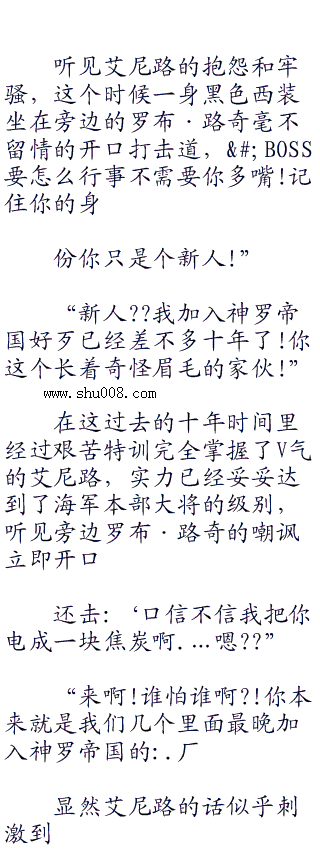 听见艾尼路的抱怨和牢
骚，这个时候一身黑色西装
坐在旁边的罗布·路奇毫不
留情的开口打击道，&#;BOSS
要怎么行事不需要你多嘴!记
住你的身
份你只是个新人!”
“新人??我加入神罗帝
国好歹已经差不多十年了!你
这个长着奇怪眉毛的家伙!”
www.shu008.com
在这过去的十年时间里
经过艰苦特训完全掌握了V气
的艾尼路，实力已经妥妥达
到了海军本部大将的级别，
听见旁边罗布·路奇的嘲讽
立即开口
还击:‘口信不信我把你
电成一块焦炭啊.…嗯??”
“来啊!谁怕谁啊?!你本
来就是我们几个里面最晚加
入神罗帝国的:.厂
显然艾尼路的话似乎刺
激到